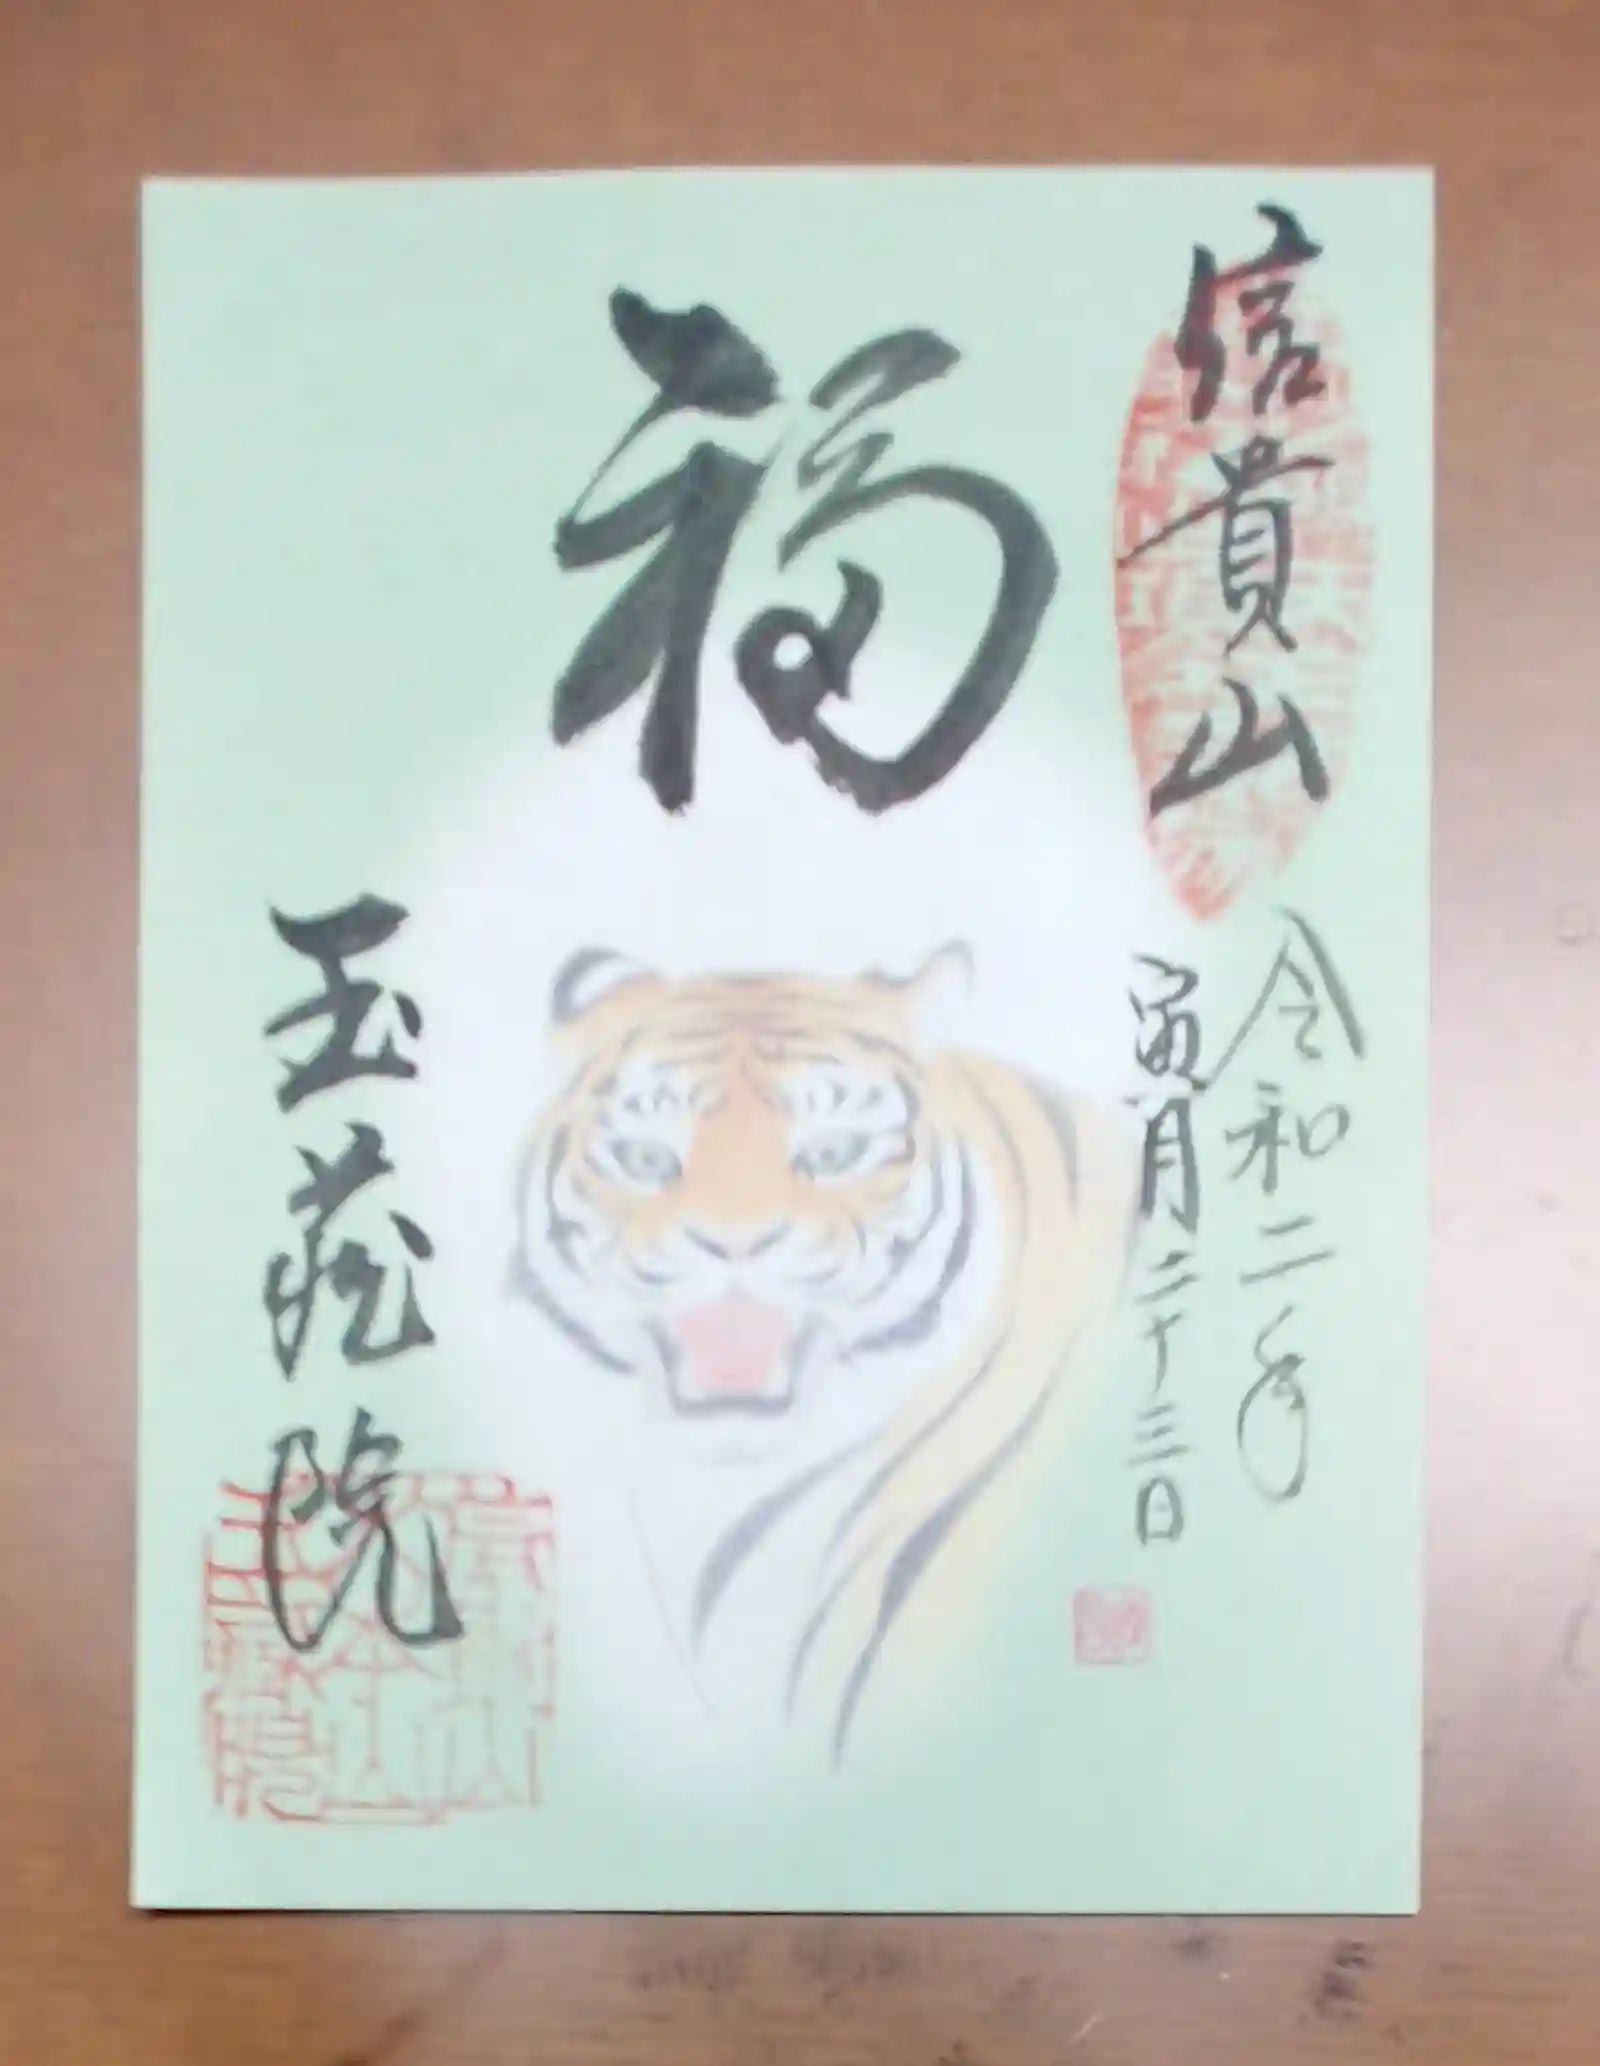 信貴山
令和二年
寅月二十三日
福
玉蔵院